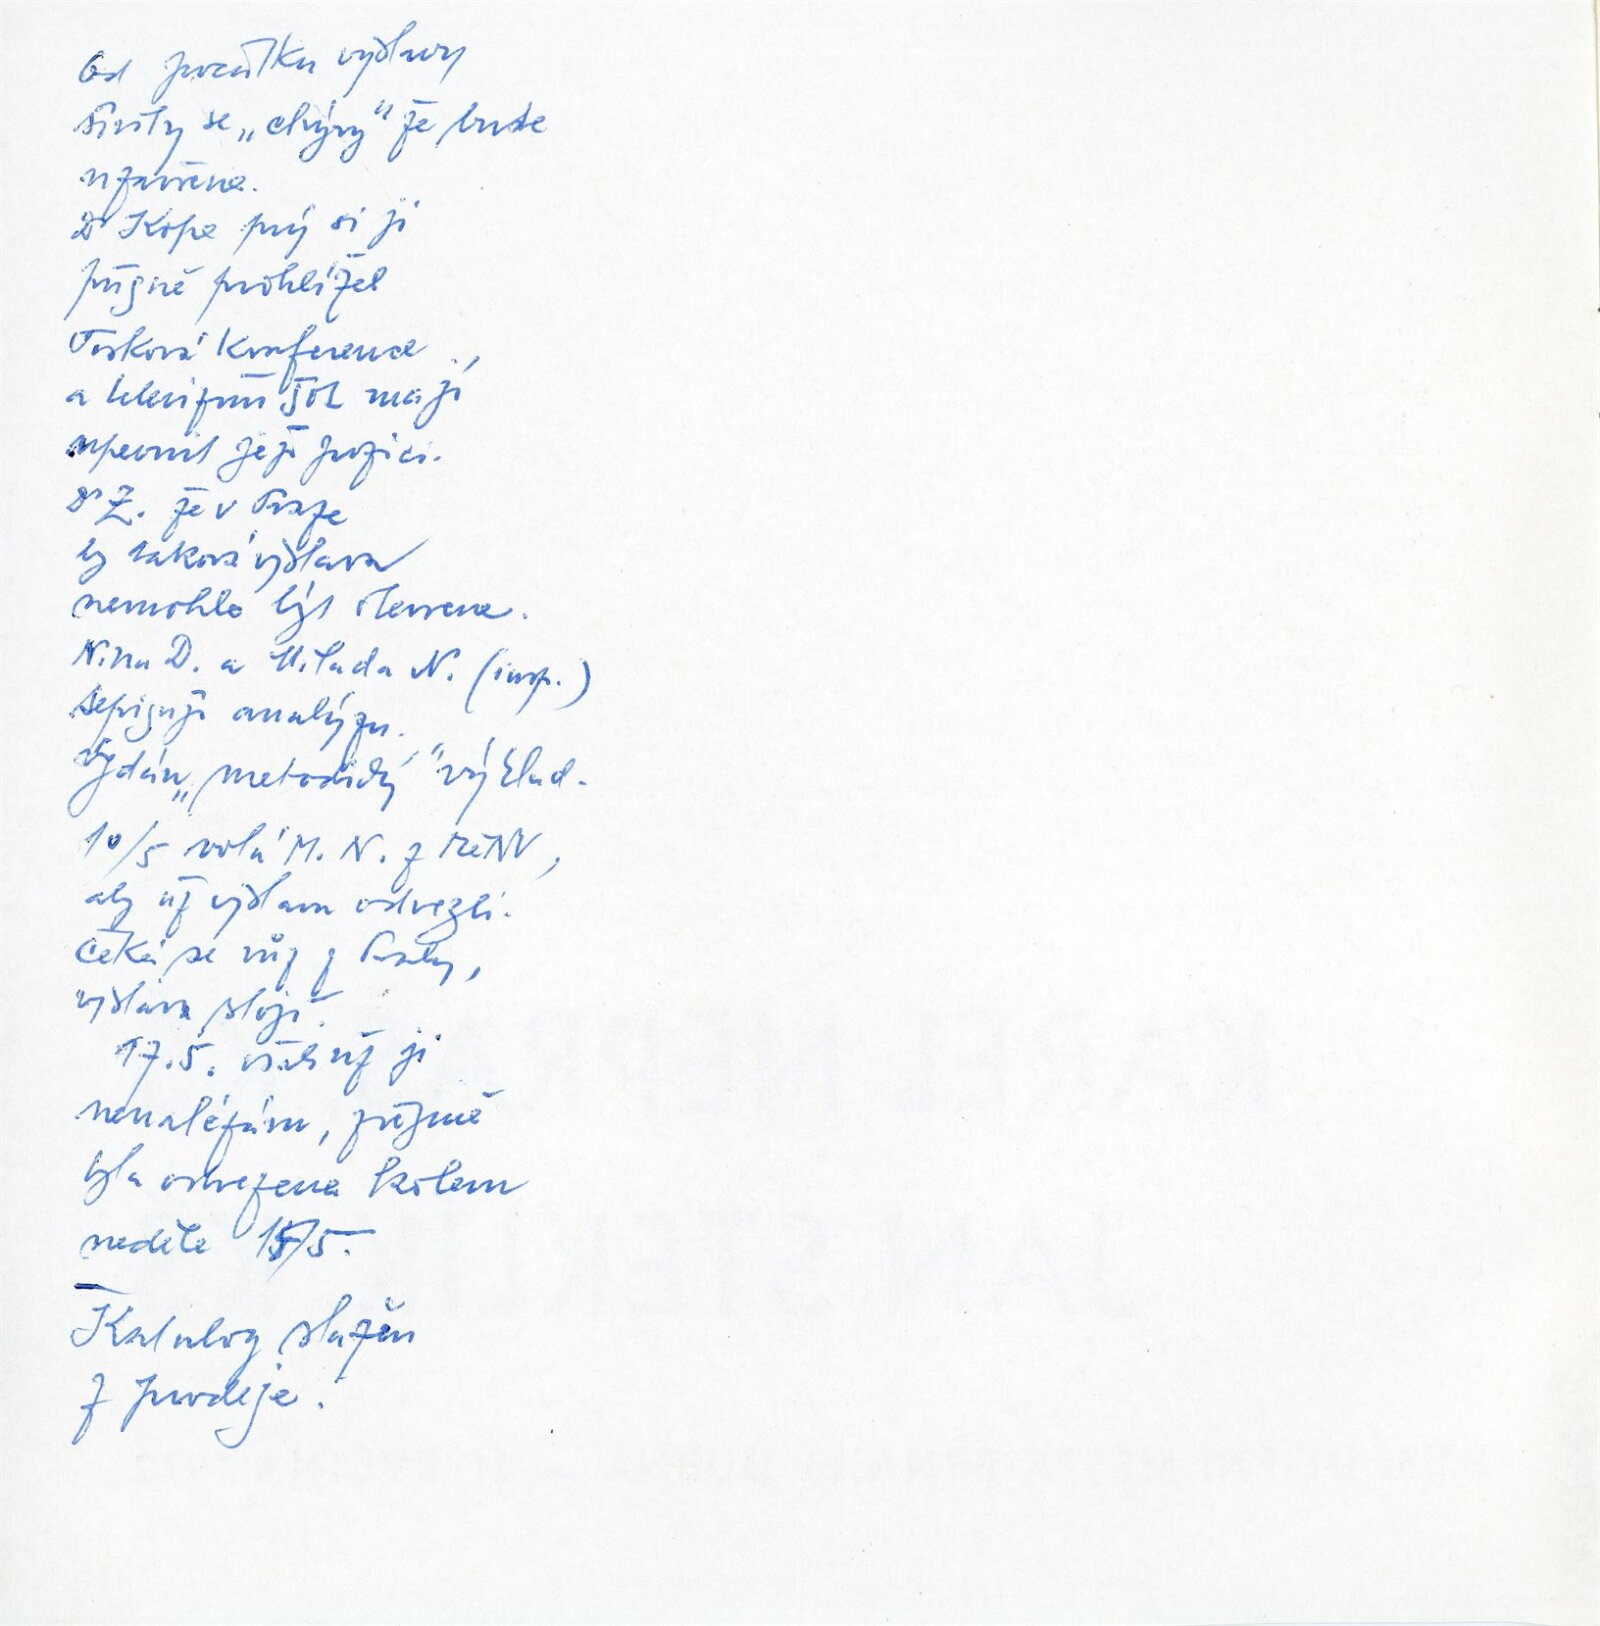 Od počátku výstavy
šířily se „chýry" že bude
uzavřena.
Dr Kopa prý si ji
přísně prohlížel
Tisková konference,
a televizní šot mají
upevnit její pozici.
Dr Z. že v Praze
by taková výstava
nemohla být otevřena.
Nina D. a Milada N. (insp.)
sepisují analýzu.
Vydán „metodický" výklad.
10/5 volá M. N. z
aby už výstavu odvezli.
Čeká se vůz z Prahy,
výstava stojí.
17.5. už ji
nenalézám, zřejmě
byla odvezena kolem
neděle 15/5.
Katalog stažen
z prodeje.